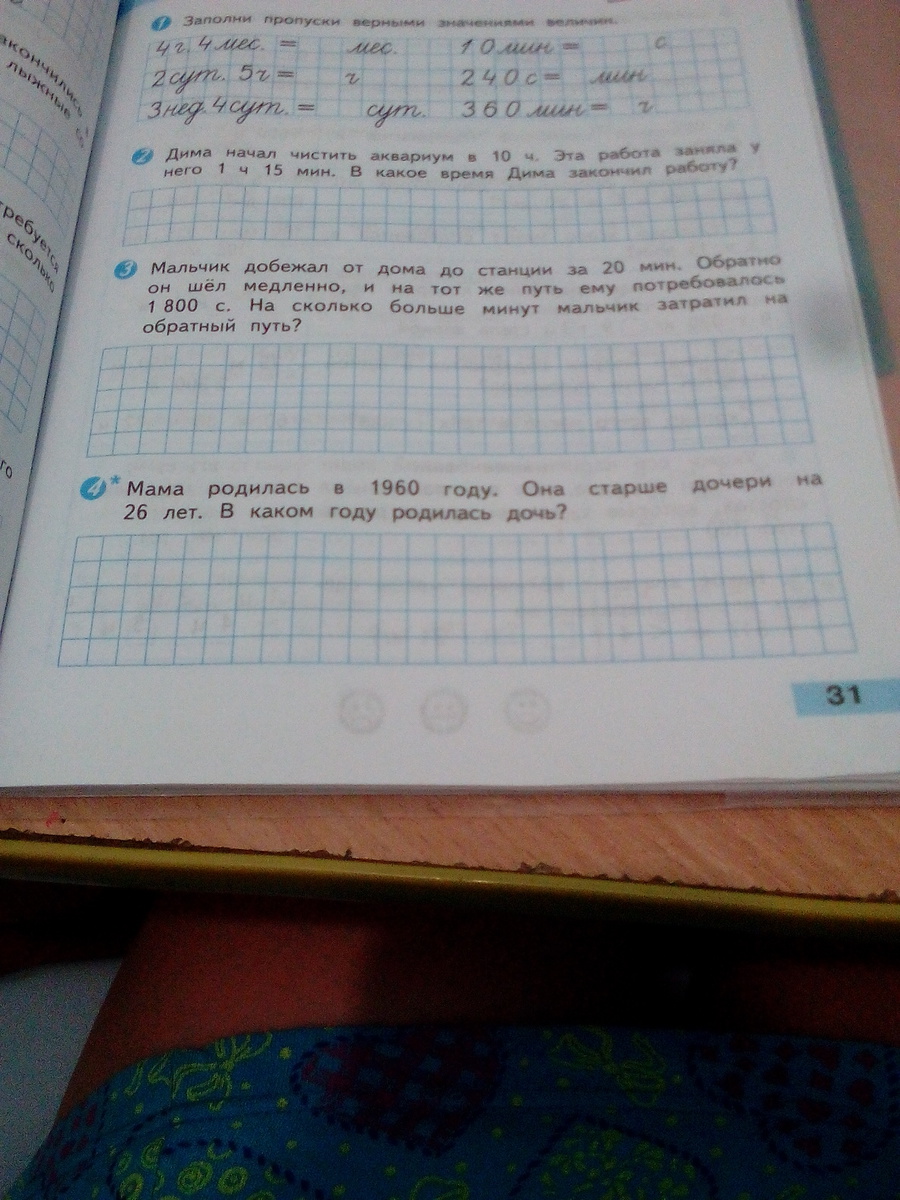 акончились
лыжные со
требуется
сколько
го
1 Заполни пропуски верными значениями величин.
4 г. 4 мес. = мес. 10 мин = с
2 сут. 5 ч = ч 240 с = мин
3 нед. 4 сут. = сут. 360 мин = ч
2 Дима начал чистить аквариум в 10 ч. Эта работа заняла у
него 1 ч 15 мин. В какое время Дима закончил работу?
3 Мальчик добежал от дома до станции за 20 мин. Обратно
он шёл медленно, и на тот же путь ему потребовалось
1 800 с. На сколько больше минут мальчик затратил на
обратный путь?
4* Мама родилась в 1960 году. Она старше дочери на
26 лет. В каком году родилась дочь?
31